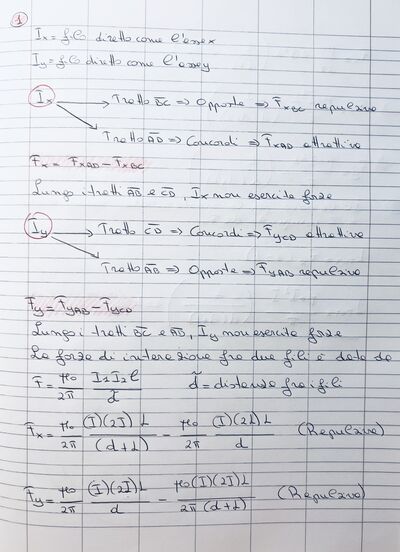 1
Ix = filo diretto come l'asse x
Iy = filo diretto come l'asse y
Ix → Tratto BC ⇒ Opposte ⇒ FxBC repulsivo
→ Tratto AD ⇒ Concordi ⇒ FxAD attrattivo
Fx = FxAD - FxBC
Lungo i tratti AB e CD, Ix non esercita forze
Iy → Tratto CD ⇒ Concordi ⇒ FyCD attrattivo
→ Tratto AB ⇒ Opposte ⇒ FyAB repulsivo
Fy = FyAB - FyCD
Lungo i tratti BC e AD, Iy non esercita forze
La forza di interazione fra due fili è data da
F = μ0/2π I1I2l/d̃   d̃ = distanza fra i fili
Fx = μ0/2π (I)(2I)L/(d+L) - μ0/2π (I)(2I)L/d (Repulsivo)
Fy = μ0/2π (I)(2I)L/d - μ0(I)(2I)L/2π(d+L) (Repulsivo)